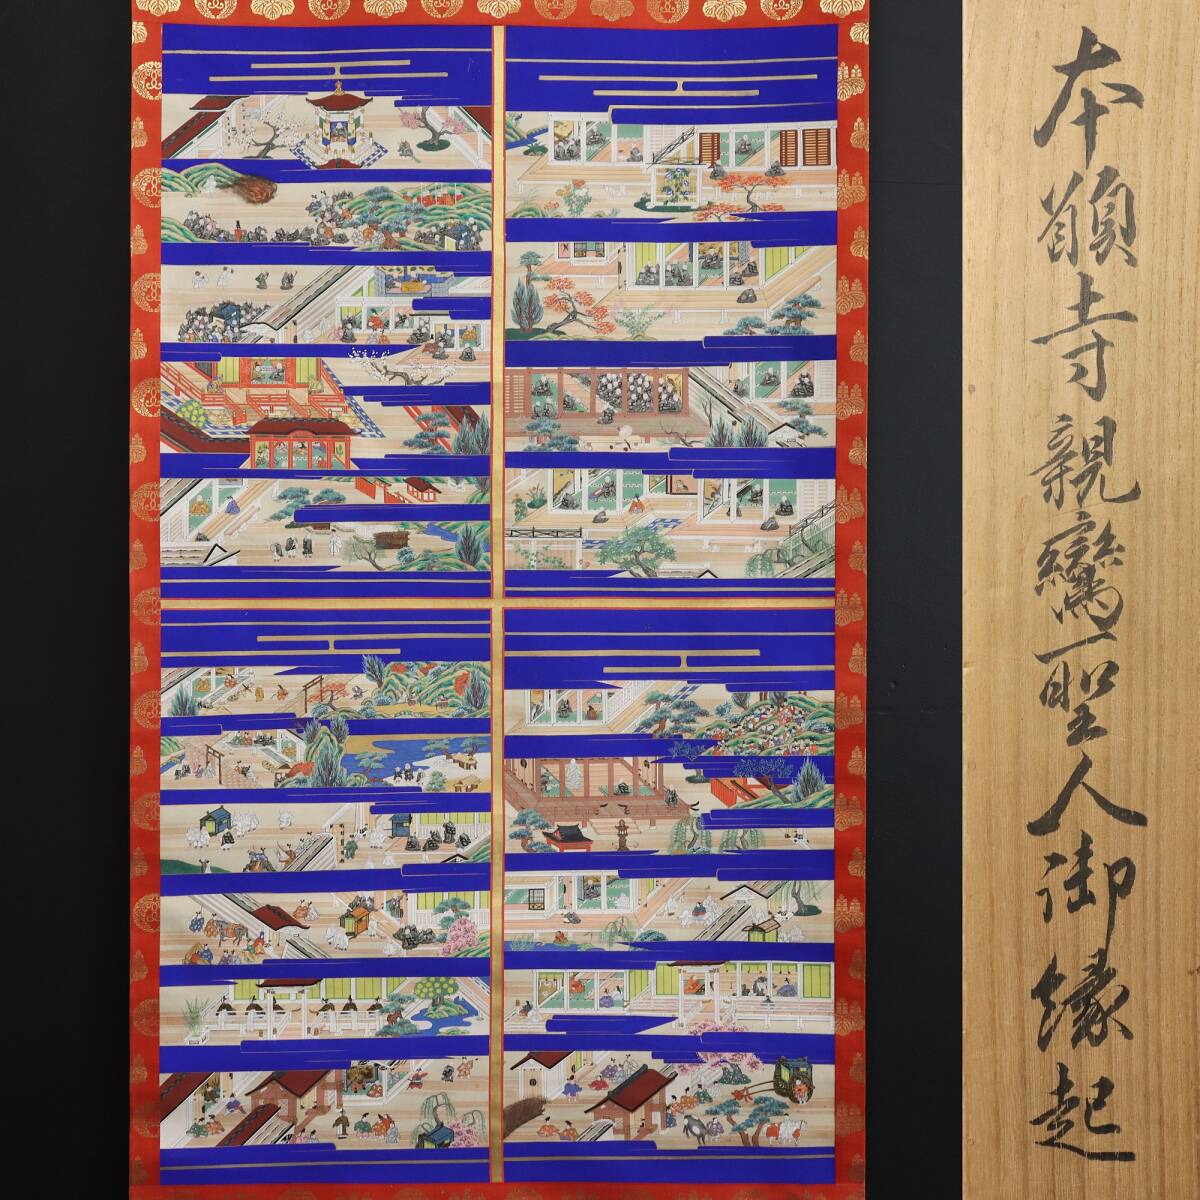 本願寺親鸞聖人御縁起